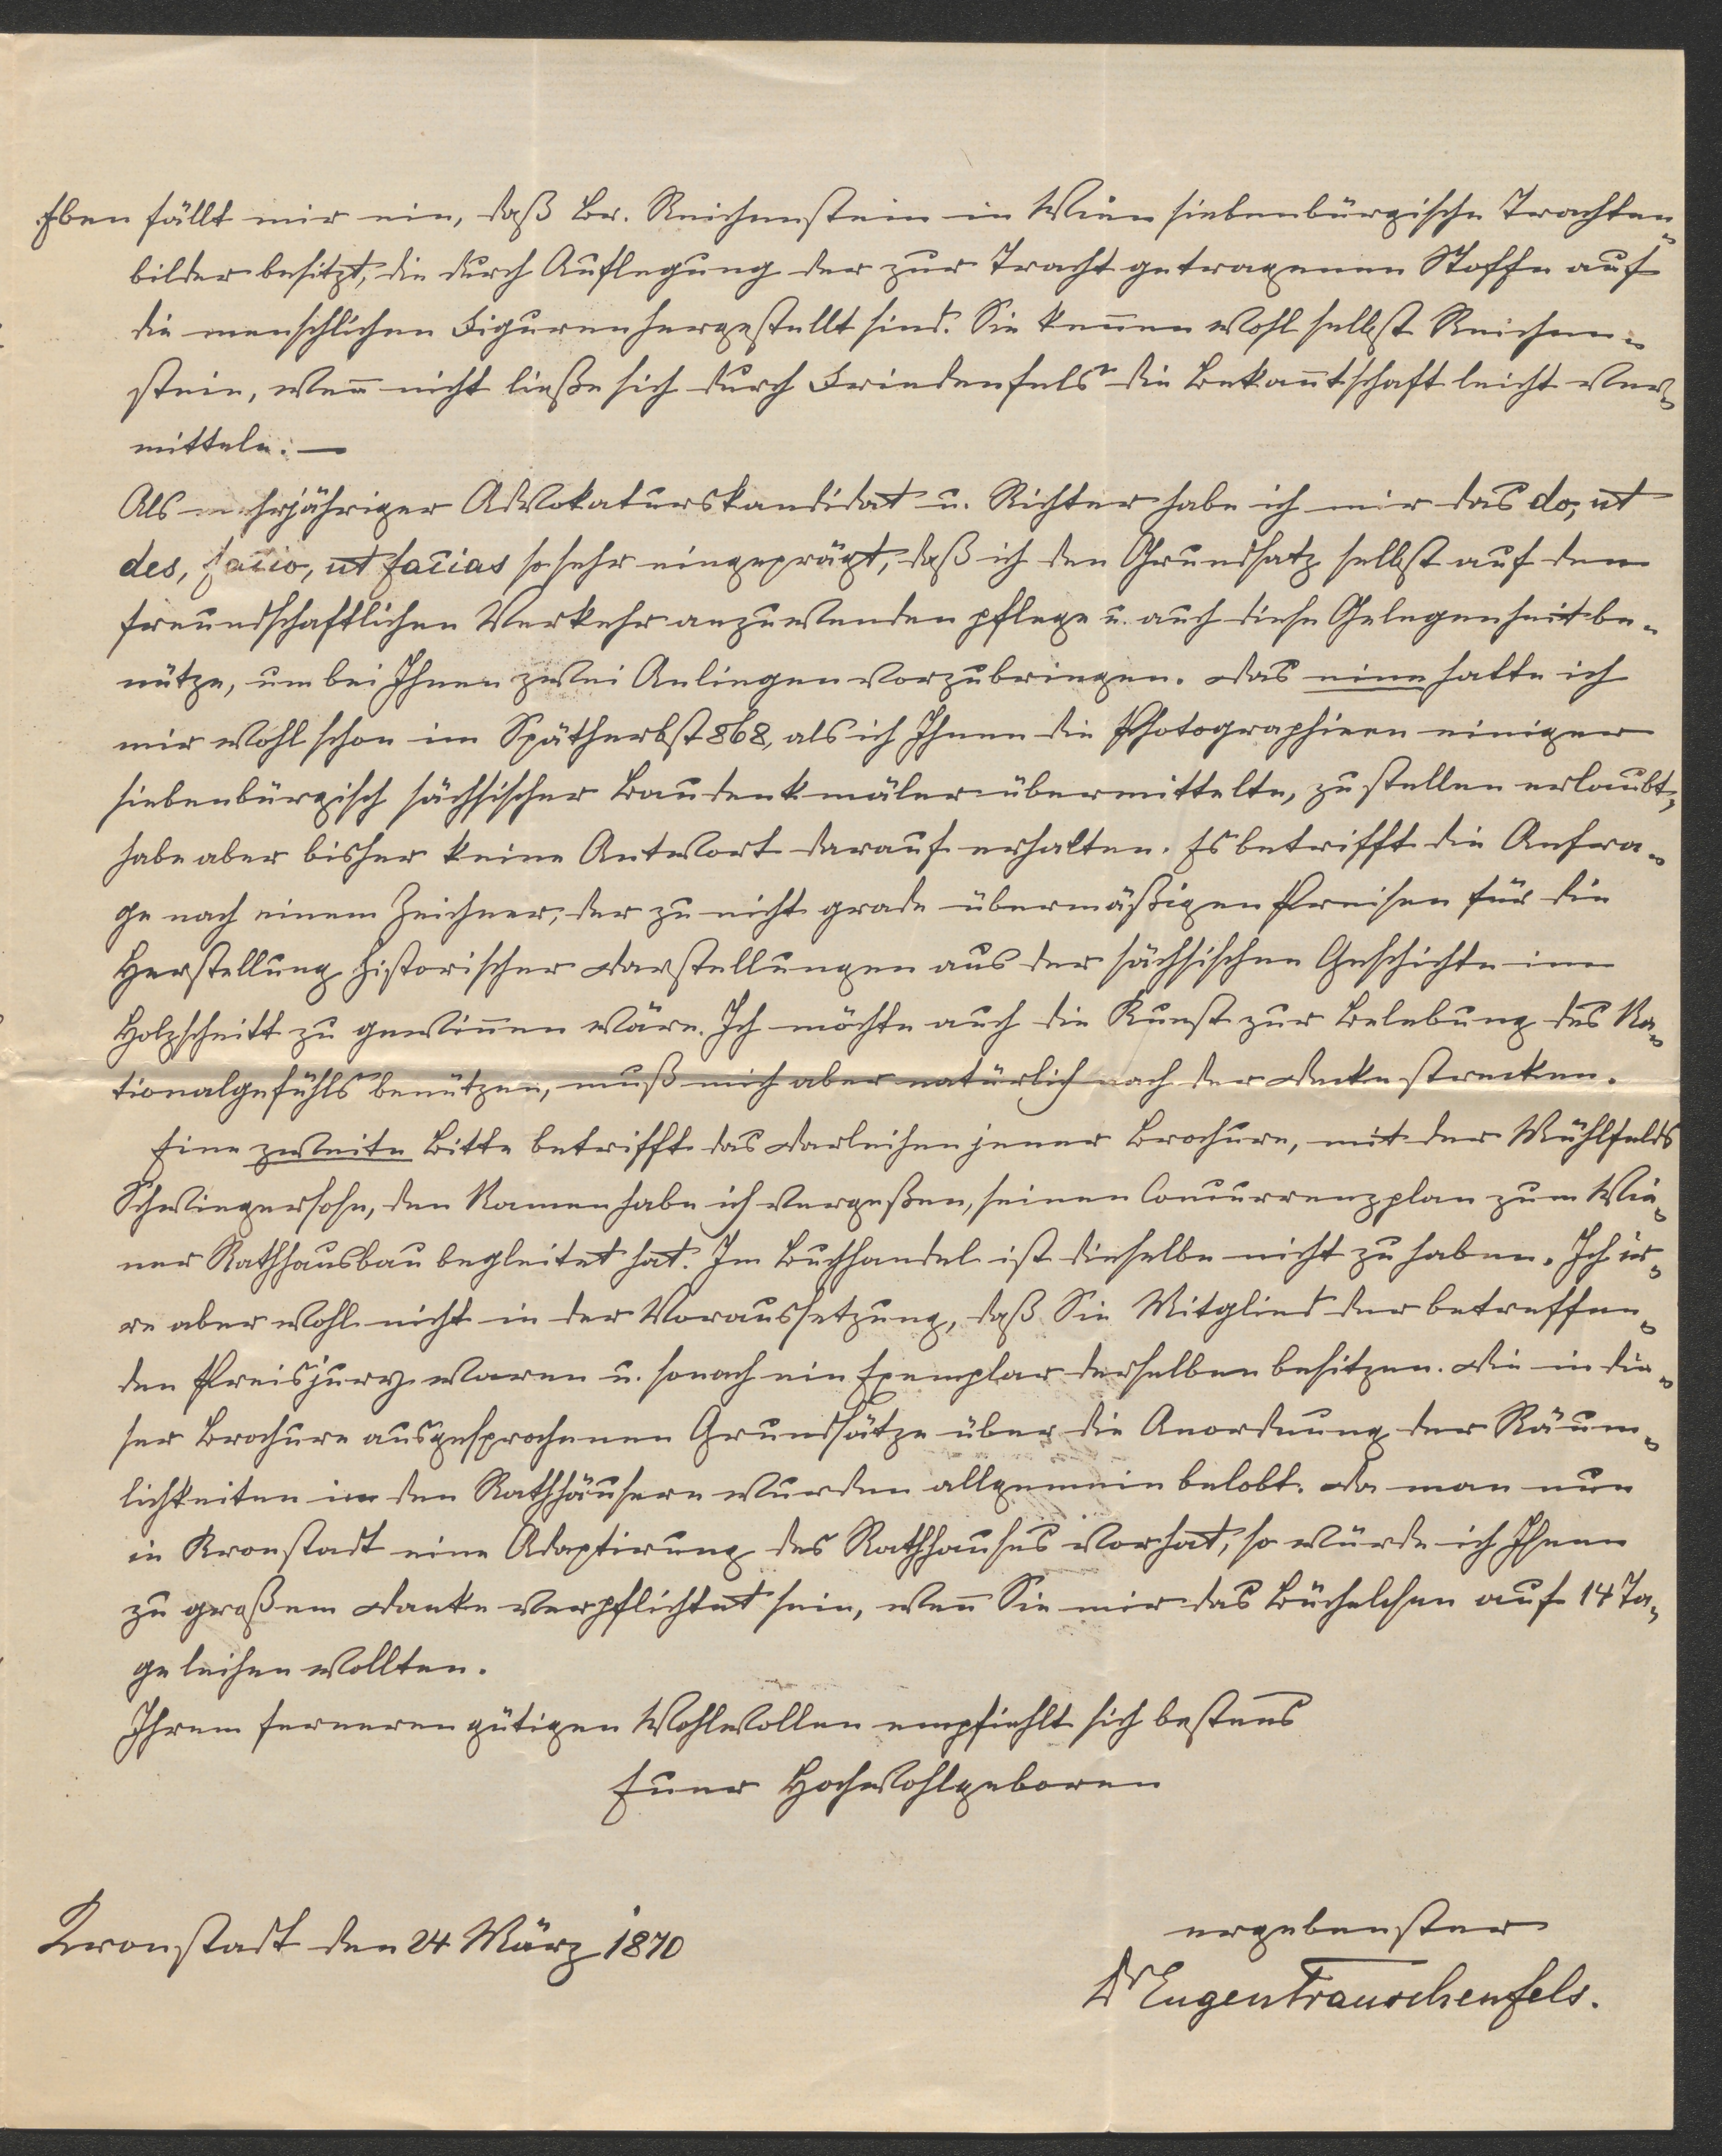 Eben fällt mir ein, daß Br. Reichenstein in Wien siebenbürgische Trachten-
bilder besitzt, die durch Auflegung der zur Tracht getragenen Stoffe auf
die menschlichen Figuren hergestellt sind. Sie kennen wohl selbst Reichen-
stein, wen̄ nicht ließe sich durch Friedenfels die Bekan̄tschaft leicht ver-
mitteln. —
Als mehrjähriger Advokaturskandidat u. Richter habe ich mir das do, ut
des, facio, ut facias so sehr eingeprägt, daß ich den Grundsatz selbst auf den
freundschaftlichen Verkehr anzuwenden pflege u. auch diese Gelegenheit be-
nütze, um bei Ihnen zwei Anliegen vorzubringen. Das eine hatte ich
mir wohl schon im Spätherbst 868, als ich Ihnen die Photographieen einiger
siebenbürgisch sächsischer Baudenkmäler übermittelte, zu stellen erlaubt,
habe aber bisher keine Antwort darauf erhalten. Es betrifft die Anfra-
ge nach einem Zeichner, der zu nicht grade übermäßigen Preisen für die
Herstellung historischer Darstellungen aus der sächsischen Geschichte im
Holzschnitt zu gewin̄en wäre. Ich möchte auch die Kunst zur Belebung des Na-
tionalgefühls benützen, muß mich aber natürlich nach der Decke strecken.
Eine zweite Bitte betrifft das Darleihen jener Brochure, mit der Mühlfelds
Schwiegersohn, den Namen habe ich vergeßen, seinen Concurrenzplan zum Wie-
ner Rathhausbau begleitet hat. Im Buchhandel ist dieselbe nicht zu haben. Ich ir-
re aber wohl nicht in der Voraussetzung, daß Sie Mitglied der betreffen-
den Preisjury waren u. sonach ein Exemplar derselben besitzen. Die in die-
ser Brochure ausgesprochenen Grundsätze über die Anordnung der Räum-
lichkeiten in den Rathhäusern wurden allgemein belobt. Da man nun
in Kronstadt eine Adaptirung des Rathhauses vorhat, so würde ich Ihnen
zu großem Danke verpflichtet sein, wen̄ Sie mir das Büchelchen auf 14 Ta-
ge leihen wollten.
Ihrem ferneren gütigen Wohlwollen empfiehlt sich bestens
Euer Hochwohlgeboren
ergebenster
Kronstadt den 24 März 1870
Dr Eugen Trauschenfels.